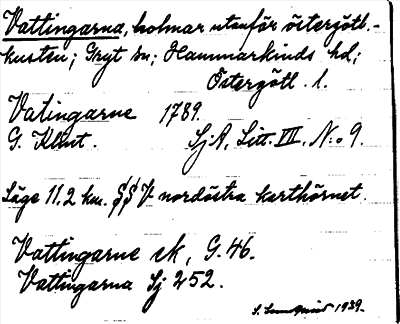 Vattingarna, holmar utanför östergötl.-
kusten; Gryt sn; Hammarkinds hd;
Östergötl. l.
Vatingarne 1789.
G. Klint. SjA, Litt. VII, N:o 9.
Läge 11,2 km. SSV nordöstra karthörnet.
Vattingarne ek, G. 46.
Vattingarna Sj 252.
S. 1939.